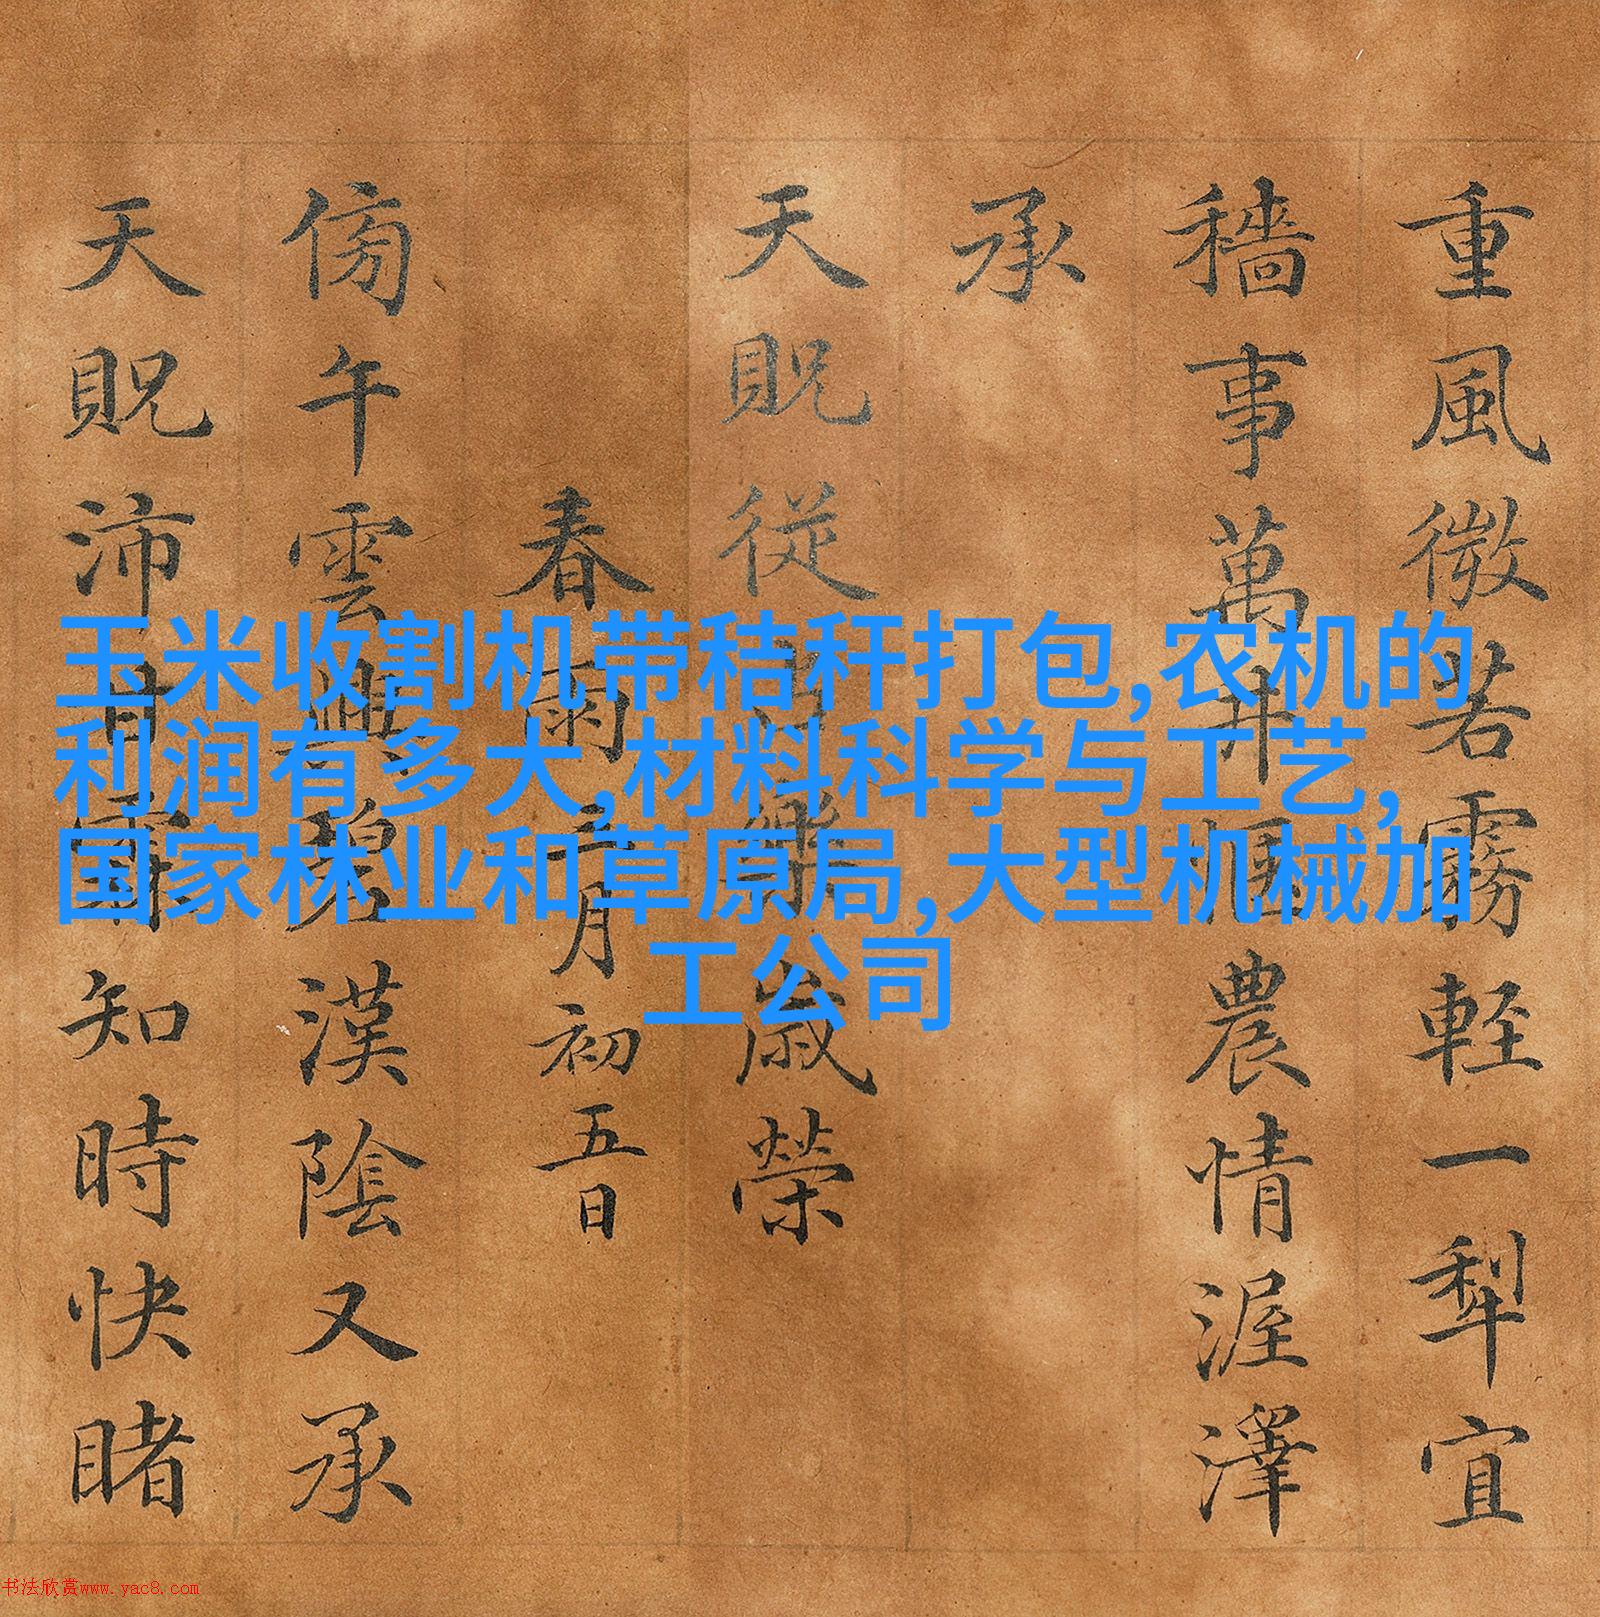 玉米收割机带秸秆打包,农机的
利润有多大,材料科学与工艺,
国家林业和草原局,大型机械加
工公司
重風微若霧輕一犁宜
穡事萬井農情渥澤
承
天貺從樂歲榮
春雨月初五日
傍午雲興碧漢陰又承
天貺沛甘霖知時快睹
书法欣赏www.yac8.com